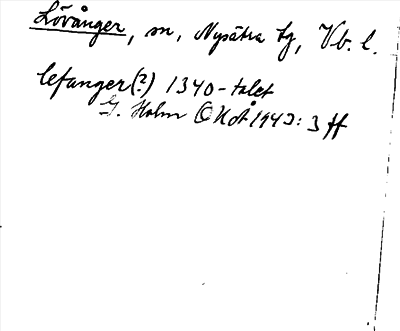 Lövånger, sn, Nysätra tg, Vb. l.
lefanger(?) 1340-talet
G. Holm ONoÅ 1943: 3 ff